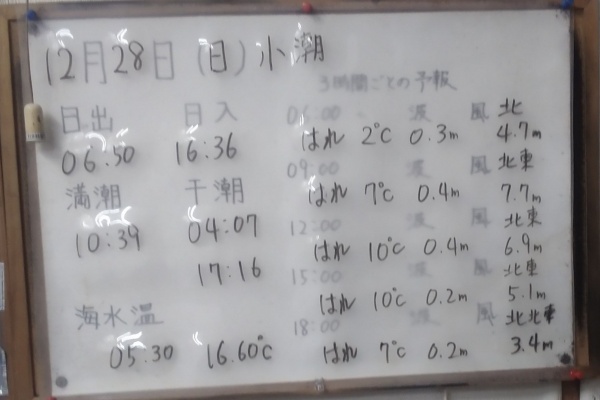 12月28日(日)小潮
日出 日入
06:50 16:36
満潮 干潮
10:39 04:07
17:16
海水温
05:30 16.60℃
3時間ごとの予報
06:00 波 風 北
はれ 2℃ 0.3m 4.7m
09:00 波 風 北東
はれ 7℃ 0.4m 7.7m
12:00 波 風 北東
はれ 10℃ 0.4m 6.9m
15:00 波 風 北東
はれ 10℃ 0.2m 5.1m
18:00 波 風 北北東
はれ 7℃ 0.2m 3.4m